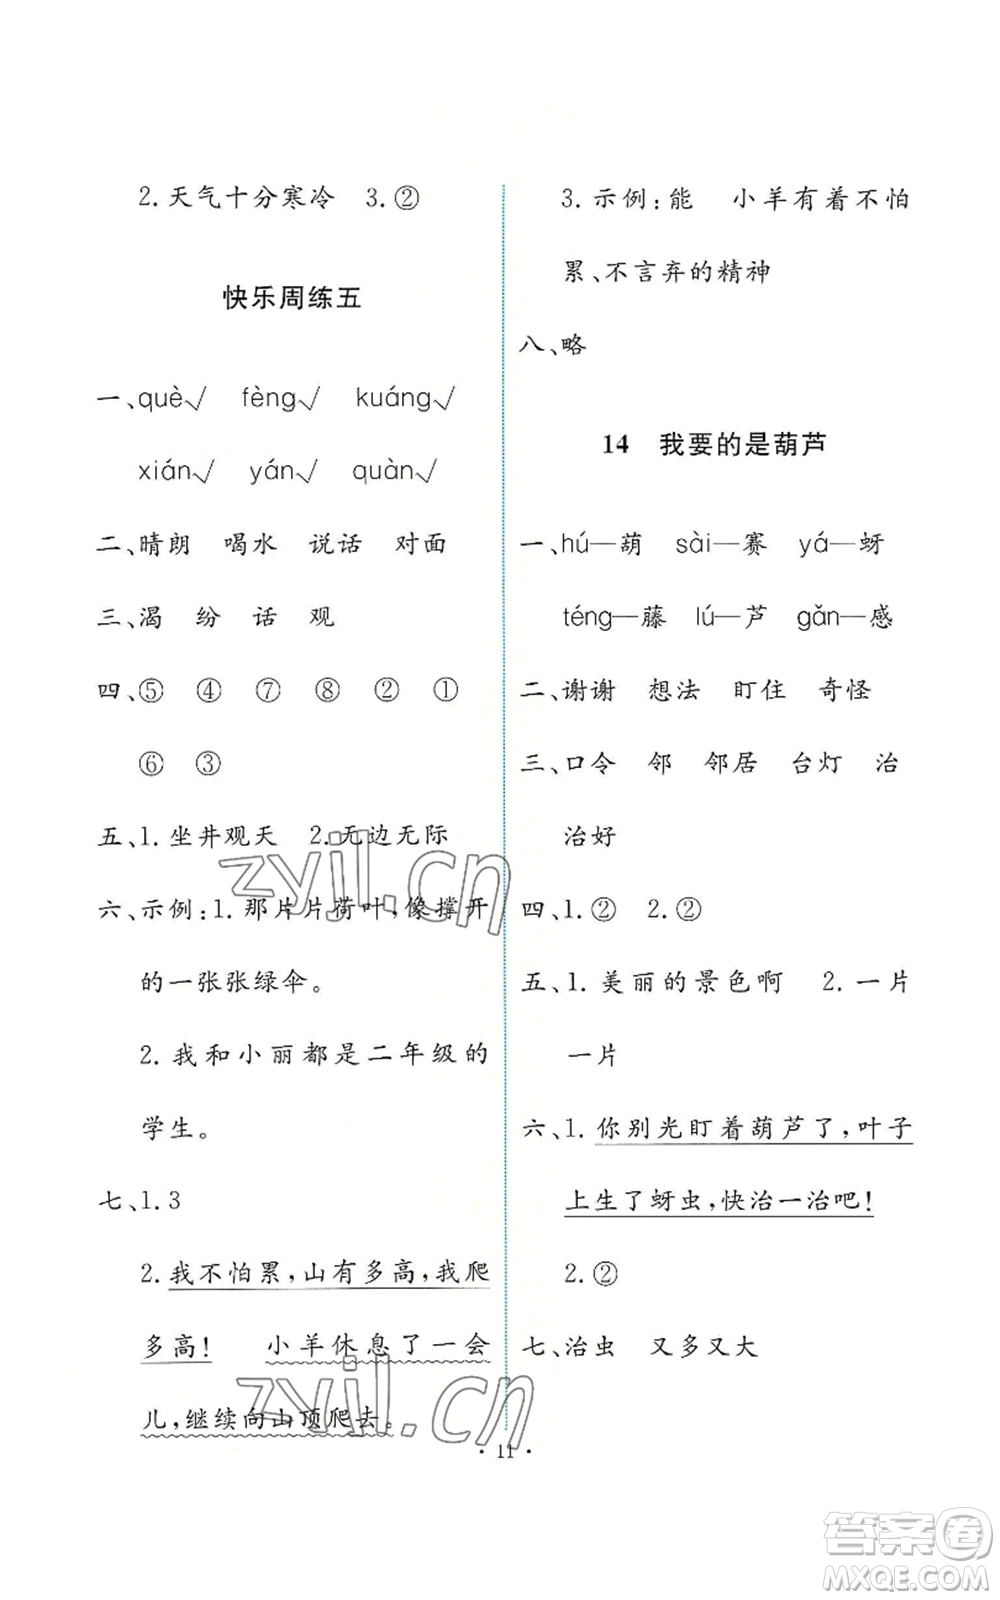 2.天气十分寒冷　3.②
快乐周练五
一、què√　fèng√　kuáng√
xián√　yán√　quàn√
二、晴朗　喝水　说话　对面
三、渴　纷　话　观
四、⑤　④　⑦　⑧　②　①
⑥　③
五、1.坐井观天　2.无边无际
六、示例：1.那片片荷叶，像撑开
的一张张绿伞。
2.我和小丽都是二年级的
学生。
七、1.3
2.我不怕累，山有多高，我爬
多高！　小羊休息了一会
儿，继续向山顶爬去。
3.示例：能　小羊有着不怕
累、不言弃的精神
八、略
14　我要的是葫芦
一、hú—葫　sài—赛　yá—蚜
téng—藤　lú—芦　gǎn—感
二、谢谢　想法　盯住　奇怪
三、口令　邻　邻居　台灯　治
治好
四、1.②　2.②
五、1.美丽的景色啊　2.一片
一片
六、1.你别光盯着葫芦了，叶子
上生了蚜虫，快治一治吧！
2.②
七、治虫　又多又大
· 11 ·
zyjl.cn
zyjl.cn
答案卷
MXQE.COM